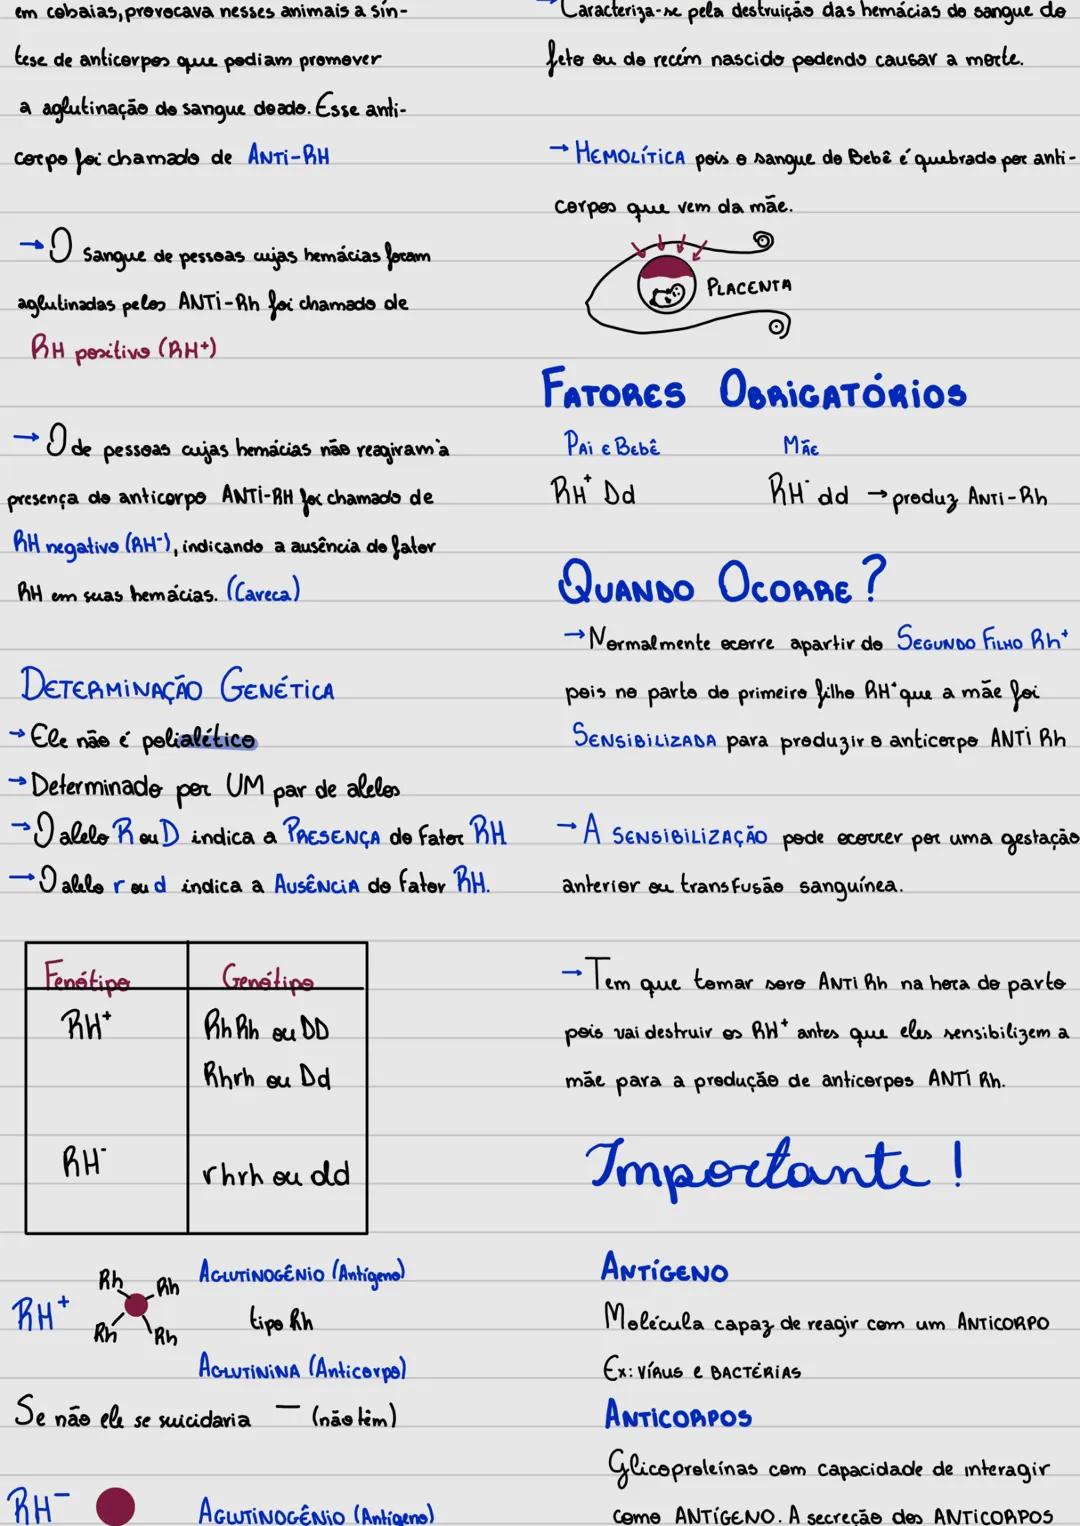 em cobaias, provocava nesses animais a sín-
tese de anticorpos que podiam promover
a aglutinação do sangue doado. Esse anti-
corpo foi chamado de ANTi-RH
→ O sangue de pessoas cujas hemácias foram
aglutinadas pelos ANTi-Rh foi chamado de
RH positivo (RH+)
→ O de pessoas cujas hemácias não reagiram à
presença do anticorpo ANTi-RH foi chamado de
RH negativo (RH-), indicando a ausência do fator
RH em suas hemácias. (Careca)
DETERMINAÇÃO GENÉTICA
→ Ele não é polialético
→ Determinado por UM par de alelos
→ O alelo R ou D indica a PRESENÇA do Fator RH
→ O alelo r ou d indica a AUSÊNCIA do Fator RH.
Fenótipo Genótipo
RH+ RhRh ou DD
Rhrh ou Dd
RH- rhrh ou dd
RH+ Rh Rh Rh Rh AGLUTINOGÊNIO (Antígeno)
tipo Rh
AGLUTININA (Anticorpo)
Se não ele se suicidaria — (não têm)
RH- AGLUTINOGÊNIO (Antígeno)
→ Caracteriza-se pela destruição das hemácias do sangue do
feto ou do recém nascido podendo causar a morte.
→ HEMOLÍTICA pois o sangue do Bebê é quebrado por anti-
corpos que vem da mãe.
PLACENTA
FATORES OBRIGATÓRIOS
PAI E BEBÊ MÃE
RH+ Dd RH- dd → produz ANTI-Rh
QUANDO OCORRE?
→ Normalmente ocorre apartir do SEGUNDO FILHO Rh+
pois no parto do primeiro filho RH+ que a mãe foi
SENSIBILIZADA para produzir o anticorpo ANTI Rh
→ A SENSIBILIZAÇÃO pode ocorrer por uma gestação
anterior ou transfusão sanguínea.
→ Tem que tomar soro ANTI Rh na hora do parto
pois vai destruir os RH+ antes que eles sensibilizem a
mãe para a produção de anticorpos ANTI Rh.
Importante!
ANTÍGENO
Molécula capaz de reagir com um ANTICORPO
Ex: VÍRUS E BACTÉRIAS
ANTICORPOS
Glicoproleínas com capacidade de interagir
como ANTÍGENO. A secreção dos ANTICORPOS